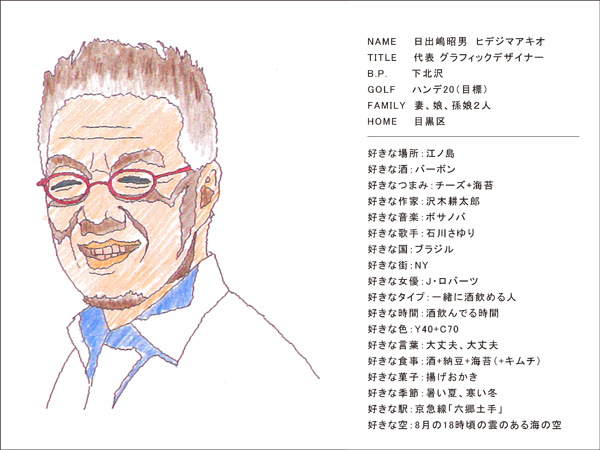 NAME 日出嶋昭男 ヒデジマアキオ
TITLE 代表 グラフィックデザイナー
B.P. 下北沢
GOLF ハンデ20(目標)
FAMILY 妻、娘、孫娘2人
HOME 目黒区
好きな場所:江ノ島
好きな酒:バーボン
好きなつまみ:チーズ+海苔
好きな作家:沢木耕太郎
好きな音楽:ボサノバ
好きな歌手:石川さゆり
好きな国:ブラジル
好きな街:NY
好きな女優:J・ロバーツ
好きなタイプ:一緒に酒飲める人
好きな時間:酒飲んでる時間
好きな色:Y40+C70
好きな言葉:大丈夫、大丈夫
好きな食事:酒+納豆+海苔(+キムチ)
好きな菓子:揚げおかき
好きな季節:暑い夏、寒い冬
好きな駅:京急線「六郷土手」
好きな空:8月の18時頃の雲のある海の空